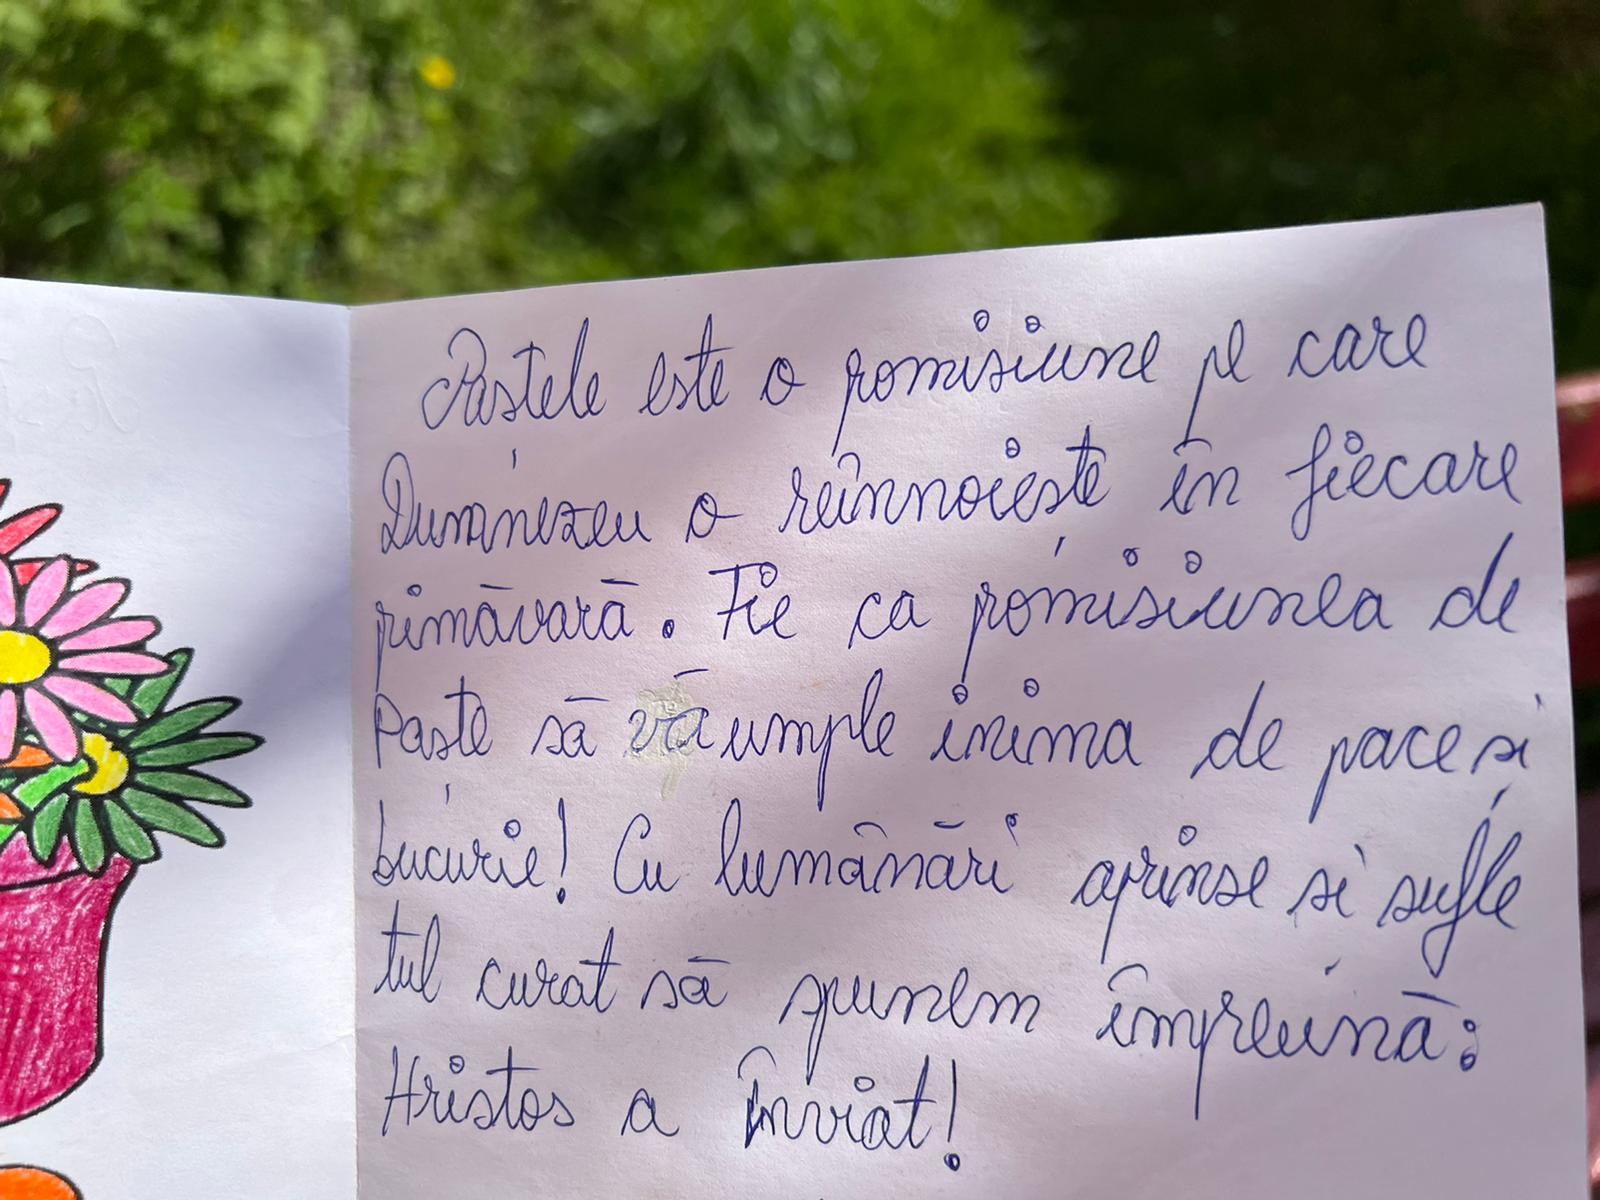 Paștele este o promisiune pe care
Dumnezeu o reînnoiește în fiecare
primăvară. Fie ca promisiunea de
Paște să vă umple inima de pace și
bucurie! Cu lumânări aprinse și sufle
tul curat să spunem împreună:
Hristos a înviat!